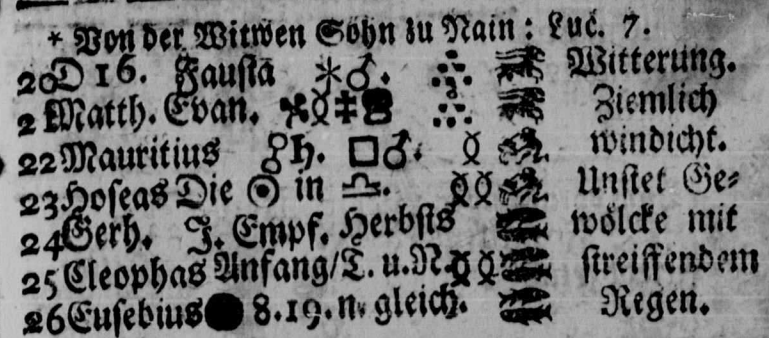 * Von der Witwen Sohn zu Nain: Luc. 7.
20 D 16. Fausta ⚹♂. Witterung.
21 Matth. Evan. Ziemlich
22 Mauritius ♄. □♂. windicht.
23 Hoseas Die ☉ in ♎. Unstet Ge⸗
24 Gerh. J. Empf. Herbsts wölcke mit
25 Cleophas Anfang/T. u. N. streiffendem
26 Eusebius ● 8.19.n. gleich. Regen.